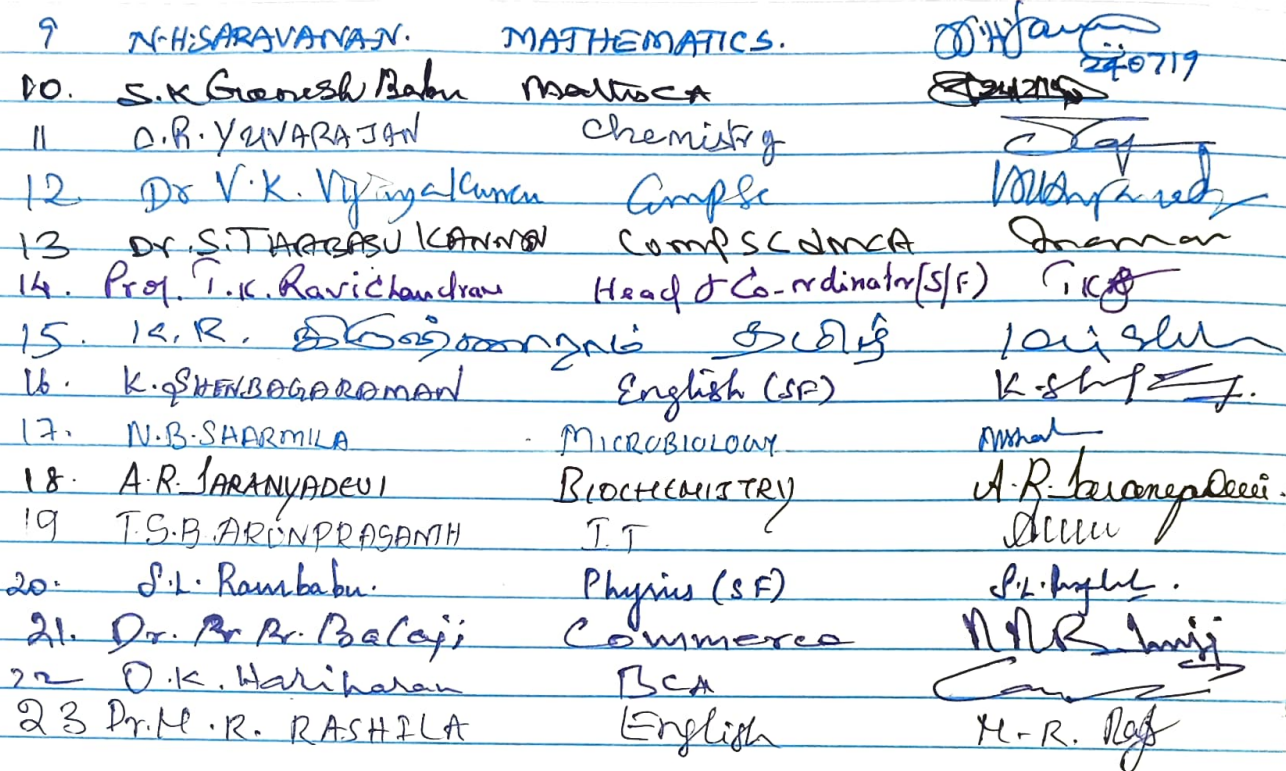 9 N.H.SARAVANAN. MATHEMATICS. 240719
10. S.K Ganesh Babu
11 O.R. YUVARAJAN Chemistry
12 Dr V.K. Vijayakumar CompSc
13 Dr.S.THARABASU KANNAN COMPSC & MCA
14. Prof. T.K. Ravichandran Head & Co-ordinator (S/F) T.K
15. K.R. தமிழ்
16. K. SHENBAGARAMAN English (SF) K.
17. N.B.SHARMILA MICROBIOLOGY
18. A.R.SARANYADEVI BIOCHEMISTRY A.R.SaranyaDevi.
19 T.S.B.ARUNPRASANTH I.T
20. S.L. Rambabu. Physics (SF) S.L.
21. Dr. Balaji Commerce
22 O.K. Hariharan BCA
23 Dr.M.R. RASHILA English M.R.